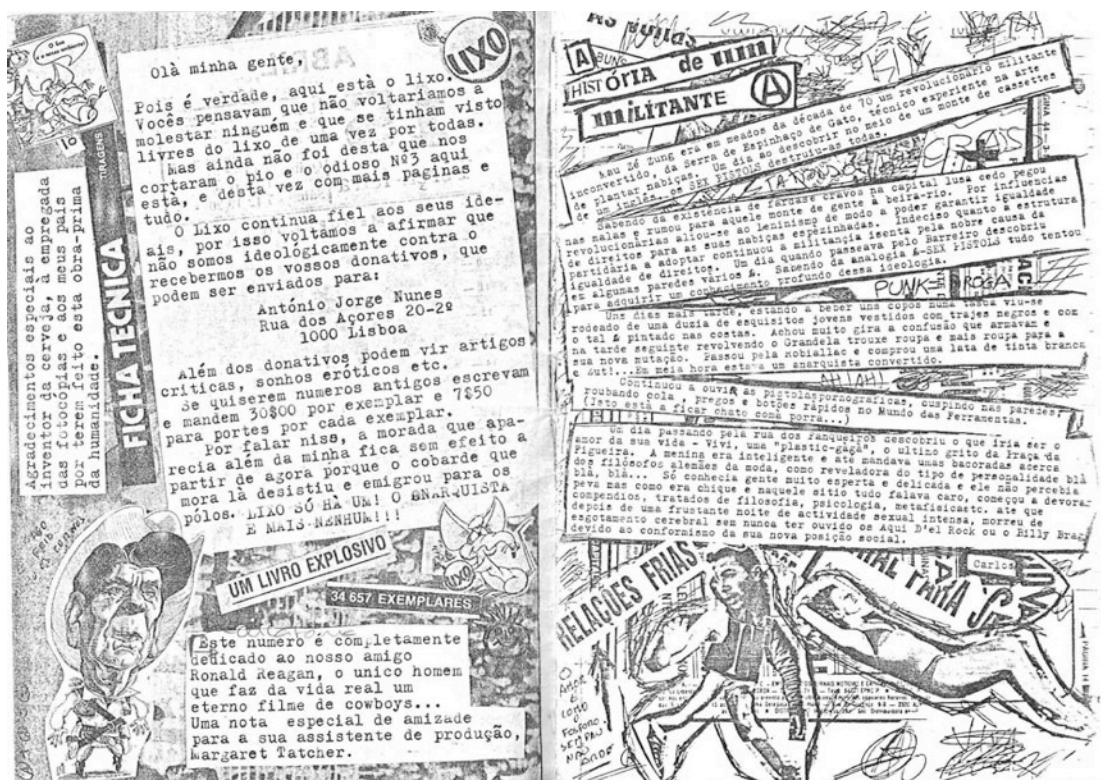 O Lixo
e o nosso ambiente!
LIXO
Olà minha gente,
Pois é verdade, aqui està o lixo.
Vocês pensavam que não voltariamos a
molestar ninguém e que se tinham visto
livres do lixo de uma vez por todas.
Mas ainda não foi desta que nos
cortaram o pio e o odioso Nº3 aqui
està, e desta vez com mais paginas e
tudo.
O Lixo continua fiel aos seus ide-
ais, por isso voltamos a afirmar que
não somos ideològicamente contra o
recebermos os vossos donativos, que
podem ser enviados para:
António Jorge Nunes
Rua dos Açores 20-2º
1000 Lisboa
Além dos donativos podem vir artigos
criticas, sonhos eròticos etc.
Se quiserem numeros antigos escrevam
e mandem 30$00 por exemplar e 7$50
para portes por cada exemplar.
Por falar niss, a morada que apa-
recia além da minha fica sem efeito a
partir de agora porque o cobarde que
mora là desistiu e emigrou para os
pólos. LIXO SÓ HÀ UM! O ANARQUISTA
E MAIS NENHUM!!!
TRAGENS
FICHA TECNICA
Agradecimentos especiais ao
inventor da cerveja, à empregada
das fotocòpias e aos meus pais
por terem feito esta obra-prima
da humanidade.
UM LIVRO EXPLOSIVO
LIXO
34 657 EXEMPLARES
Este numero é completamente
dedicado ao nosso amigo
Ronald Reagan, o unico homem
que faz da vida real um
eterno filme de cowboys...
Uma nota especial de amizade
para a sua assistente de produção,
Margaret Tatcher.
A
HISTÓRIA de um
MILITANTE A
Mau Zé Zung era em meados da década de 70 um revolucionário militante
inconvertido, da Serra de Espinhaço de Gato, técnico experiente na arte
de plantar nabiças. Um dia ao descobrir no meio de um monte de cassettes
de um inglês, os SEX PISTOLS destruiu-as todas.
Sabendo da existência de fardas e cravos na capital lusa cedo pegou
nas malas e rumou para aquele monte de gente à beira-rio. Por influências
revolucionárias aliou-se ao Leninismo de modo a poder garantir igualdade
de direitos para as suas nabiças espezinhadas. Indeciso quanto a estrutura
partidária a adoptar continuou a militança isenta pela nobre causa da
igualdade de direitos. Um dia quando passeava pelo Barreiro descobriu
ez algumas paredes vários A. Sabendo da analogia A-SEX PISTOLS tudo tentou
para adquirir um conhecimento profundo dessa ideologia.
PUNK DROGA
Uns dias mais tarde, estando a beber uns copos numa tasba viu-se
rodeado de uma duzia de esquisitos jovens vestidos com trajes negros e com
o tal A pintado nas costas. Achou muito gira a confusão que armavam e
na tarde seguinte revolvendo o Grandela trouxe roupa e mais roupa para a
sua nova mutação. Passou pela Robiallac e comprou uma lata de tinta branca
e Zut!...Em meia hora estava um anarquista convertido.
Continuou a ouvir as pistolaspornograficas, cuspindo nas paredes,
roubando cola , pregos e botões rápidos no Mundo das Ferramentas.
(isto está a ficar chato como porra...)
Um dia passando pela rua dos Fanqueiros descobriu o que iria ser o
amor da sua vida - Vivi, uma "plastic-gàgà", o ultimo grito da Praça da
Figueira. A menina era inteligente e até mandava umas bacoradas acerca
dos filósofos alemães da moda, como reveladora do tipo de personalidade blà
blà, blà... Só conhecia gente muito esperta e delicada e ele não percebia
peva mas como era chique e naquele sitio tudo falava caro, começou a devorar
compendios, tratados de filosofia, psicologia, metafisicaetc. até que
depois de uma frustante noite de actividade sexual intensa, morreu de
esgotamento cerebral sem nunca ter ouvido os Aqui D'el Rock ou o Billy Brag
devido ao conformismo da sua nova posição social.
Carlos
RELAÇÕES FRIAS
PARA
O
AMOR
É
COMO
FOSFORO
SEM PAU
NÃO
ARDE
PÁGINA 14